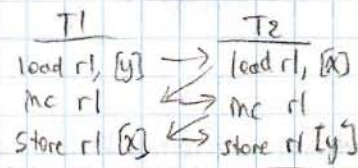 T1 T2
load r1, [y] → load r1, [x]
inc r1 inc r1
Store r1 [x] store r1 [y]